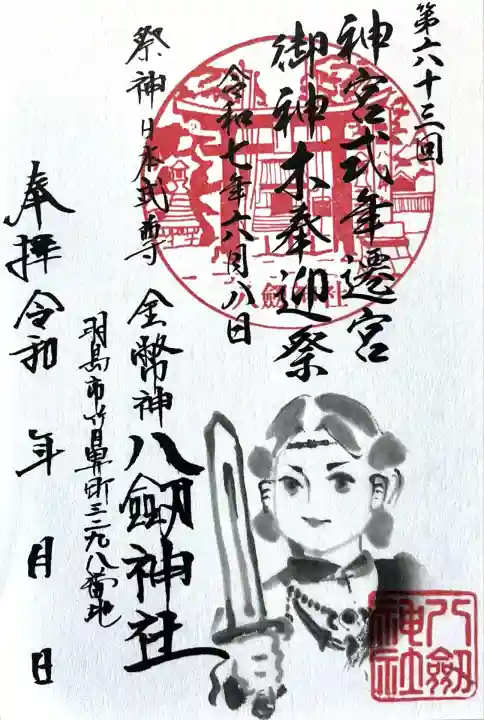 第六十三回
神宮式年遷宮
御神木奉迎祭
令和七年六月八日
祭神日本武尊
金幣神
八劔神社
羽島市竹鼻町三二九八番地
奉拝令和 年 月 日
八劔神社
八劔神社